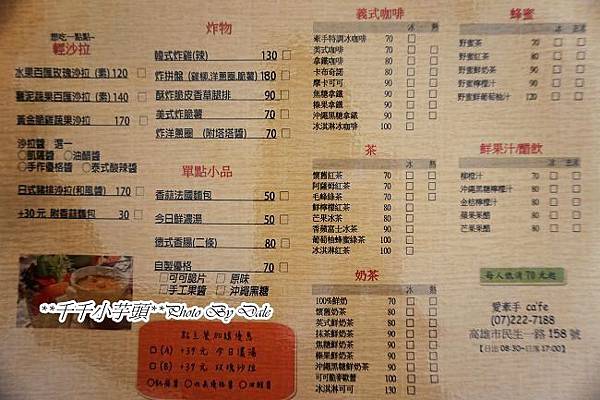 想吃一點點~
輕沙拉
水果百匯玫瑰沙拉(素) 120
薯泥蔬果百匯沙拉(素) 140
黃金脆雞蔬果沙拉 170
沙拉醬 選一
○凱薩醬 ○油醋醬
○手作優格醬 ○泰式酸辣醬
日式雞排沙拉(和風醬) 170
+30元 附香蒜麵包 30
炸物
韓式炸雞(辣) 130
炸拼盤(雞柳.洋蔥圈.脆薯) 180
酥炸脆皮香草腿排 90
美式炸脆薯 70
炸洋蔥圈 (附塔塔醬) 70
單點小品
香蒜法國麵包 50
今日鮮濃湯 50
德式香腸(二條) 80
自製優格 70
可可脆片 原味
手工果醬 沖繩黑糖
義式咖啡 冰 熱
牽手特調冰咖啡 80
美式咖啡 70
拿鐵咖啡 80
卡布奇諾 80
摩卡可可 90
焦糖拿鐵 90
榛果拿鐵 90
沖繩黑糖拿鐵 90
冰淇淋冰咖啡 100
茶 冰 熱
懷舊紅茶 70
阿薩姆紅茶 70
毛峰綠茶 70
鮮檸檬紅茶 80
芒果冰茶 80
香蘋富士冰茶 90
葡萄柚蜂蜜綠茶 90
冰淇淋紅茶 80
奶茶 冰 熱
100%鮮奶 70
懷舊奶茶 80
英式鮮奶茶 80
抹茶鮮奶茶 80
焦糖鮮奶茶 90
榛果鮮奶茶 90
沖繩黑糖鮮奶茶 90
可可脆麥歐蕾 80
冰淇淋可可 90
蜂蜜
野蜜紅茶 90
野蜜綠茶 90
野蜜鮮奶茶 90
野蜜檸檬汁 90
野蜜鮮葡萄柚汁 120
鮮果汁/醋飲
柳橙汁 70
沖繩黑糖檸檬汁 80
金桔檸檬汁 80
蘋果果醋 80
芒果果醋 80
每人低消 70 元起
愛牽手 cafe
(07)222-7188
高雄市民生一路 158 號
【日出 08:30~日落 17:00】
**千千小芋頭**Photo By D.de
點主餐加購優惠
(A) +39元 今日濃湯
(B) +39元 玫瑰沙拉